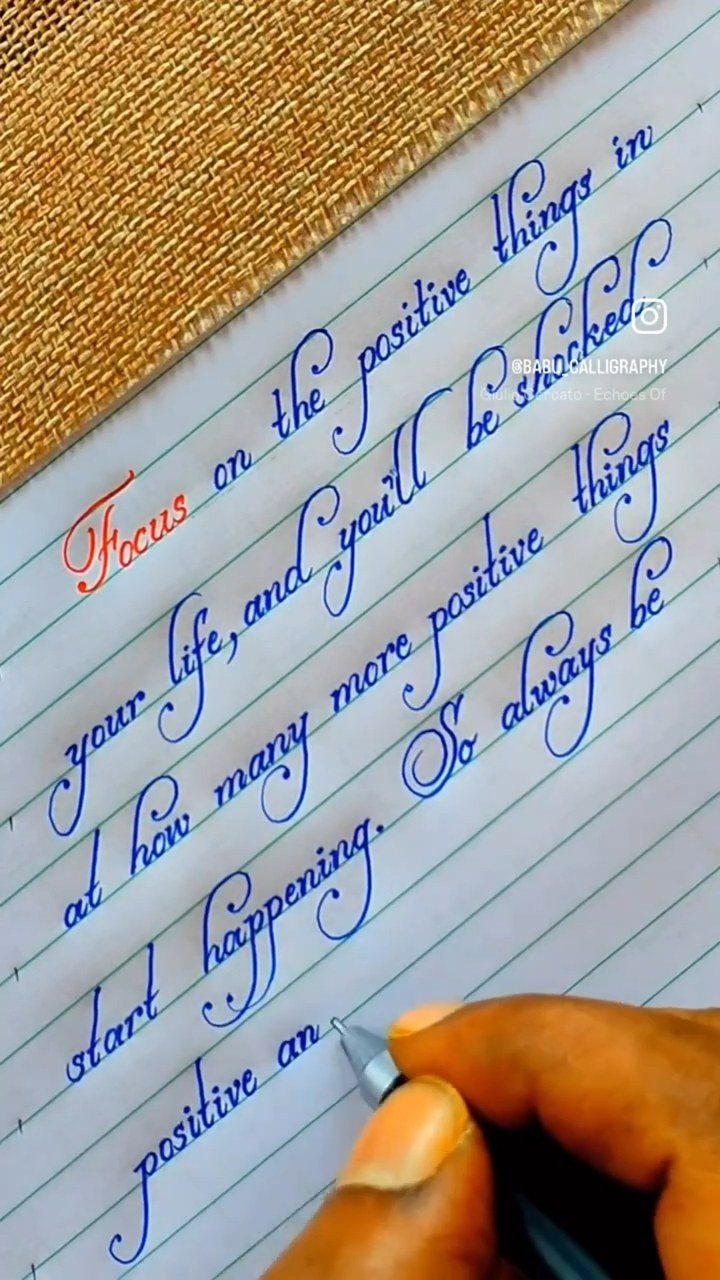 Focus on the positive things in
your life, and you'll be shocked
at how many more positive things
start happening. So always be
positive an
@BABU_CALLIGRAPHY